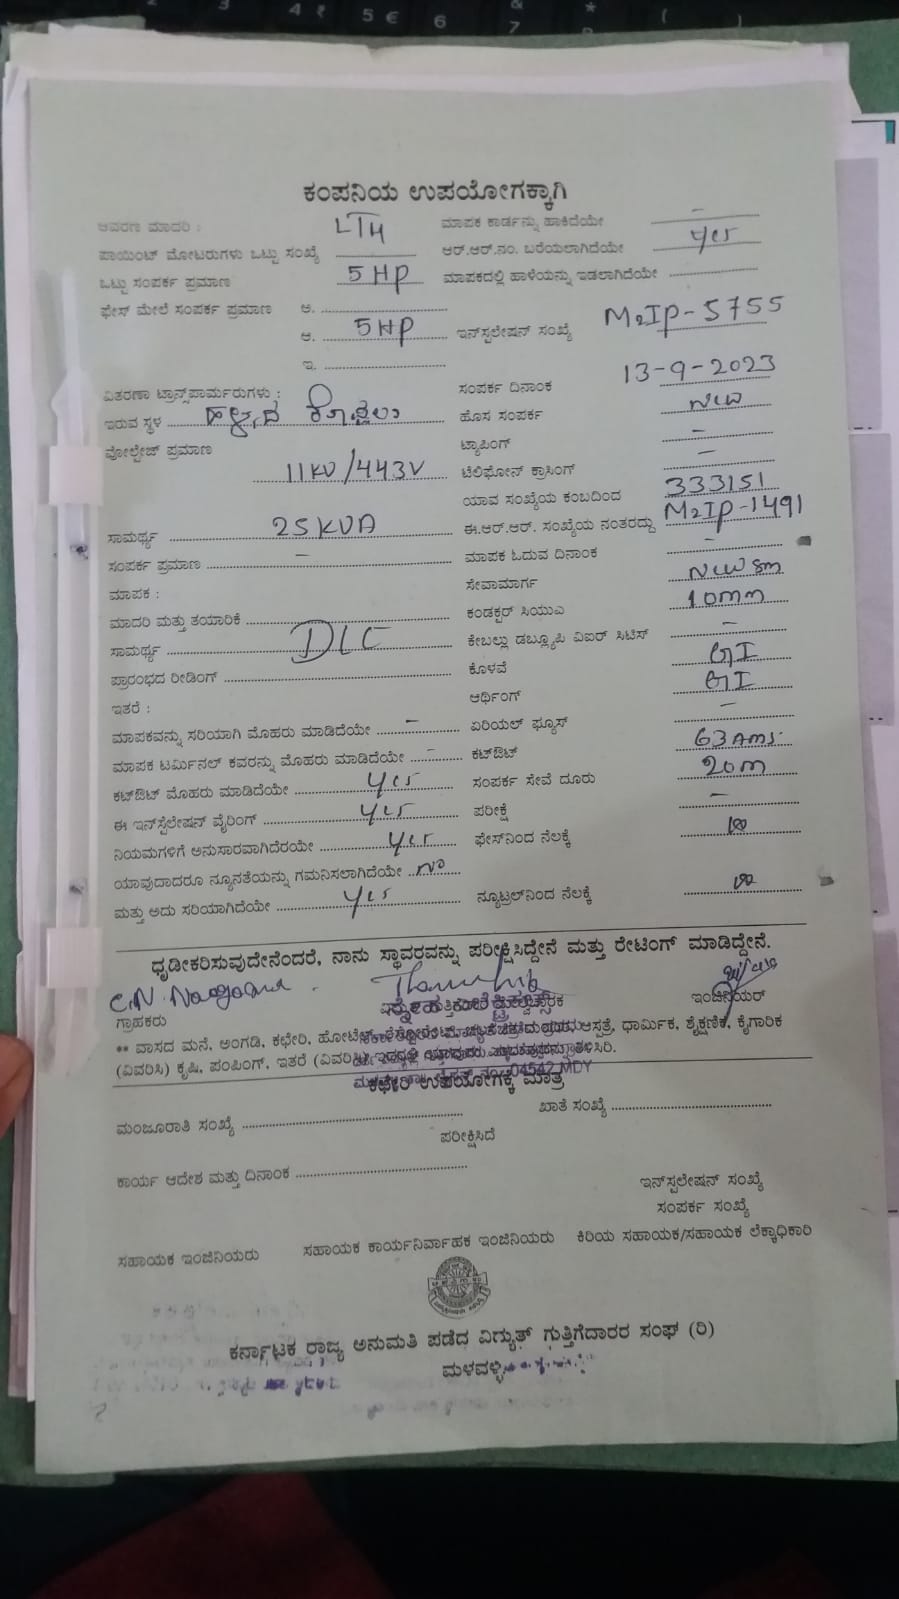 ಕಂಪನಿಯ ಉಪಯೋಗಕ್ಕಾಗಿ
ಆವರಣ ಮಾದರಿ : LT4 ಮಾಪಕ ಕಾರ್ಡನ್ನು ಹಾಕಿದೆಯೇ -
ಪಾಯಿಂಟ್ ಮೋಟರುಗಳು ಒಟ್ಟು ಸಂಖ್ಯೆ ಆರ್.ಆರ್.ನಂ. ಬರೆಯಲಾಗಿದೆಯೇ Yes
ಒಟ್ಟು ಸಂಪರ್ಕ ಪ್ರಮಾಣ 5 HP ಮಾಪಕದಲ್ಲಿ ಹಾಳೆಯನ್ನು ಇಡಲಾಗಿದೆಯೇ
ಫೇಸ್ ಮೇಲೆ ಸಂಪರ್ಕ ಪ್ರಮಾಣ ಅ.
ಆ. 5HP ಇನ್‌ಸ್ಟಲೇಷನ್ ಸಂಖ್ಯೆ M2IP-5755
ಇ.
ವಿತರಣಾ ಟ್ರಾನ್ಸ್‌ಫಾರ್ಮರುಗಳು : ಸಂಪರ್ಕ ದಿನಾಂಕ 13-9-2023
ಇರುವ ಸ್ಥಳ ಹೊಸ ಸಂಪರ್ಕ New
ವೋಲ್ಟೇಜ್ ಪ್ರಮಾಣ ಟ್ಯಾಪಿಂಗ್ -
11KV/443V ಟೆಲಿಫೋನ್ ಕ್ರಾಸಿಂಗ್ -
ಯಾವ ಸಂಖ್ಯೆಯ ಕಂಬದಿಂದ 333151
ಸಾಮರ್ಥ್ಯ 25KVA ಈ.ಆರ್.ಆರ್. ಸಂಖ್ಯೆಯ ನಂತರದ್ದು M2IP-1491
ಸಂಪರ್ಕ ಪ್ರಮಾಣ - ಮಾಪಕ ಓದುವ ದಿನಾಂಕ -
ಮಾಪಕ : ಸೇವಾಮಾರ್ಗ New sm
ಮಾದರಿ ಮತ್ತು ತಯಾರಿಕೆ ಕಂಡಕ್ಟರ್ ಸಿಯುಎ 10mm
ಸಾಮರ್ಥ್ಯ DLC ಕೇಬಲ್ಲು ಡಬ್ಲ್ಯೂಪಿ ವಿಐರ್ ಸಿಟಿಸ್ -
ಪ್ರಾರಂಭದ ರೀಡಿಂಗ್ ಕೊಳವೆ GI
ಇತರೆ : ಆರ್ಥಿಂಗ್ GI
ಮಾಪಕವನ್ನು ಸರಿಯಾಗಿ ಮೊಹರು ಮಾಡಿದೆಯೇ - ಏರಿಯಲ್ ಫ್ಯೂಸ್ -
ಮಾಪಕ ಟರ್ಮಿನಲ್ ಕವರನ್ನು ಮೊಹರು ಮಾಡಿದೆಯೇ - ಕಟ್‌ಔಟ್ 63 Ams
ಕಟ್‌ಔಟ್ ಮೊಹರು ಮಾಡಿದೆಯೇ Yes ಸಂಪರ್ಕ ಸೇವೆ ದೂರು 20m
ಈ ಇನ್‌ಸ್ಟೆಲೇಷನ್ ವೈರಿಂಗ್ Yes ಪರೀಕ್ಷೆ -
ನಿಯಮಗಳಿಗೆ ಅನುಸಾರವಾಗಿದೆರೆಯೇ Yes ಫೇಸ್‌ನಿಂದ ನೆಲಕ್ಕೆ
ಯಾವುದಾದರೂ ನ್ಯೂನತೆಯನ್ನು ಗಮನಿಸಲಾಗಿದೆಯೇ No
ಮತ್ತು ಅದು ಸರಿಯಾಗಿದೆಯೇ Yes ನ್ಯೂಟ್ರಲ್‌ನಿಂದ ನೆಲಕ್ಕೆ
ಧೃಡೀಕರಿಸುವುದೇನೆಂದರೆ, ನಾನು ಸ್ಥಾವರವನ್ನು ಪರೀಕ್ಷಿಸಿದ್ದೇನೆ ಮತ್ತು ರೇಟಿಂಗ್ ಮಾಡಿದ್ದೇನೆ.
ಗ್ರಾಹಕರು ಇಂಜಿನಿಯರ್
** ವಾಸದ ಮನೆ, ಅಂಗಡಿ, ಕಛೇರಿ, ಹೋಟೆಲ್, ಆಸತ್ರೆ, ಧಾರ್ಮಿಕ, ಶೈಕ್ಷಣಿಕ, ಕೈಗಾರಿಕ
(ವಿವರಿಸಿ) ಕೃಷಿ, ಪಂಪಿಂಗ್, ಇತರೆ (ವಿವರಿಸಿ)
04542 MDY
ಕಛೇರಿ ಉಪಯೋಗಕ್ಕೆ ಮಾತ್ರ
ಮಂಜೂರಾತಿ ಸಂಖ್ಯೆ ಖಾತೆ ಸಂಖ್ಯೆ
ಪರೀಕ್ಷಿಸಿದೆ
ಕಾರ್ಯ ಆದೇಶ ಮತ್ತು ದಿನಾಂಕ
ಇನ್‌ಸ್ಪಲೇಷನ್ ಸಂಖ್ಯೆ
ಸಂಪರ್ಕ ಸಂಖ್ಯೆ
ಸಹಾಯಕ ಇಂಜಿನಿಯರು ಸಹಾಯಕ ಕಾರ್ಯನಿರ್ವಾಹಕ ಇಂಜಿನಿಯರು ಕಿರಿಯ ಸಹಾಯಕ/ಸಹಾಯಕ ಲೆಕ್ಕಾಧಿಕಾರಿ
ಕರ್ನಾಟಕ ರಾಜ್ಯ ಅನುಮತಿ ಪಡೆದ ವಿದ್ಯುತ್ ಗುತ್ತಿಗೆದಾರರ ಸಂಘ (ರಿ)
ಮಳವಳ್ಳಿ